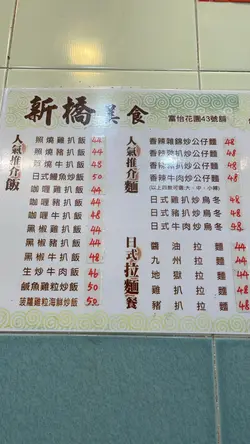 新橋美食
富怡花園43號舖
人氣推介飯
照燒雞扒飯 44
照燒豬扒飯 44
照燒牛扒飯 48
日式鰻魚炒飯 50
咖喱雞扒飯 44
咖喱豬扒飯 44
咖喱牛扒飯 48
黑椒雞扒飯 44
黑椒豬扒飯 44
黑椒牛扒飯 48
生炒牛肉飯 46
鹹魚雞粒炒飯 50
菠蘿雞粒海鮮炒飯 50
人氣推介麵
香辣雜錦炒公仔麵 48
香辣雞扒炒公仔麵 48
香辣豬扒炒公仔麵 48
香辣牛肉炒公仔麵 48
日式雞扒炒烏冬 48
日式豬扒炒烏冬 48
日式牛肉炒烏冬 48
日式拉麵餐
醬油拉麵 44
九州拉麵 44
地獄拉麵 44
雞扒拉麵 48
豬扒拉麵 48